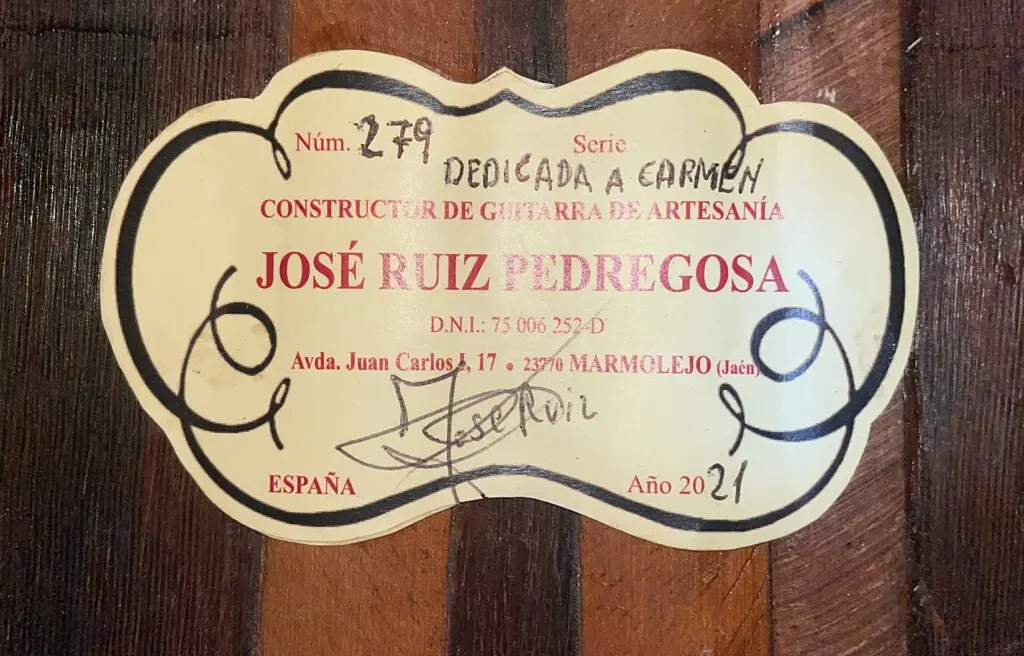 Núm. 279 Serie
DEDICADA A CARMEN
CONSTRUCTOR DE GUITARRA DE ARTESANÍA
JOSÉ RUIZ PEDREGOSA
D.N.I.: 75 006 252-D
Avda. Juan Carlos I, 17 • 23770 MARMOLEJO (Jaén)
Jose Ruiz
ESPAÑA Año 2021